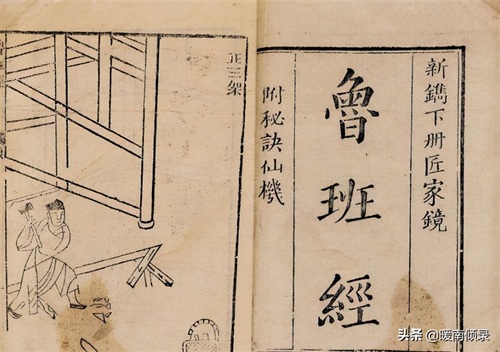 新鐫下册匠家鏡
魯班經
附秘訣仙機
正三架
头条 @暖南倾录